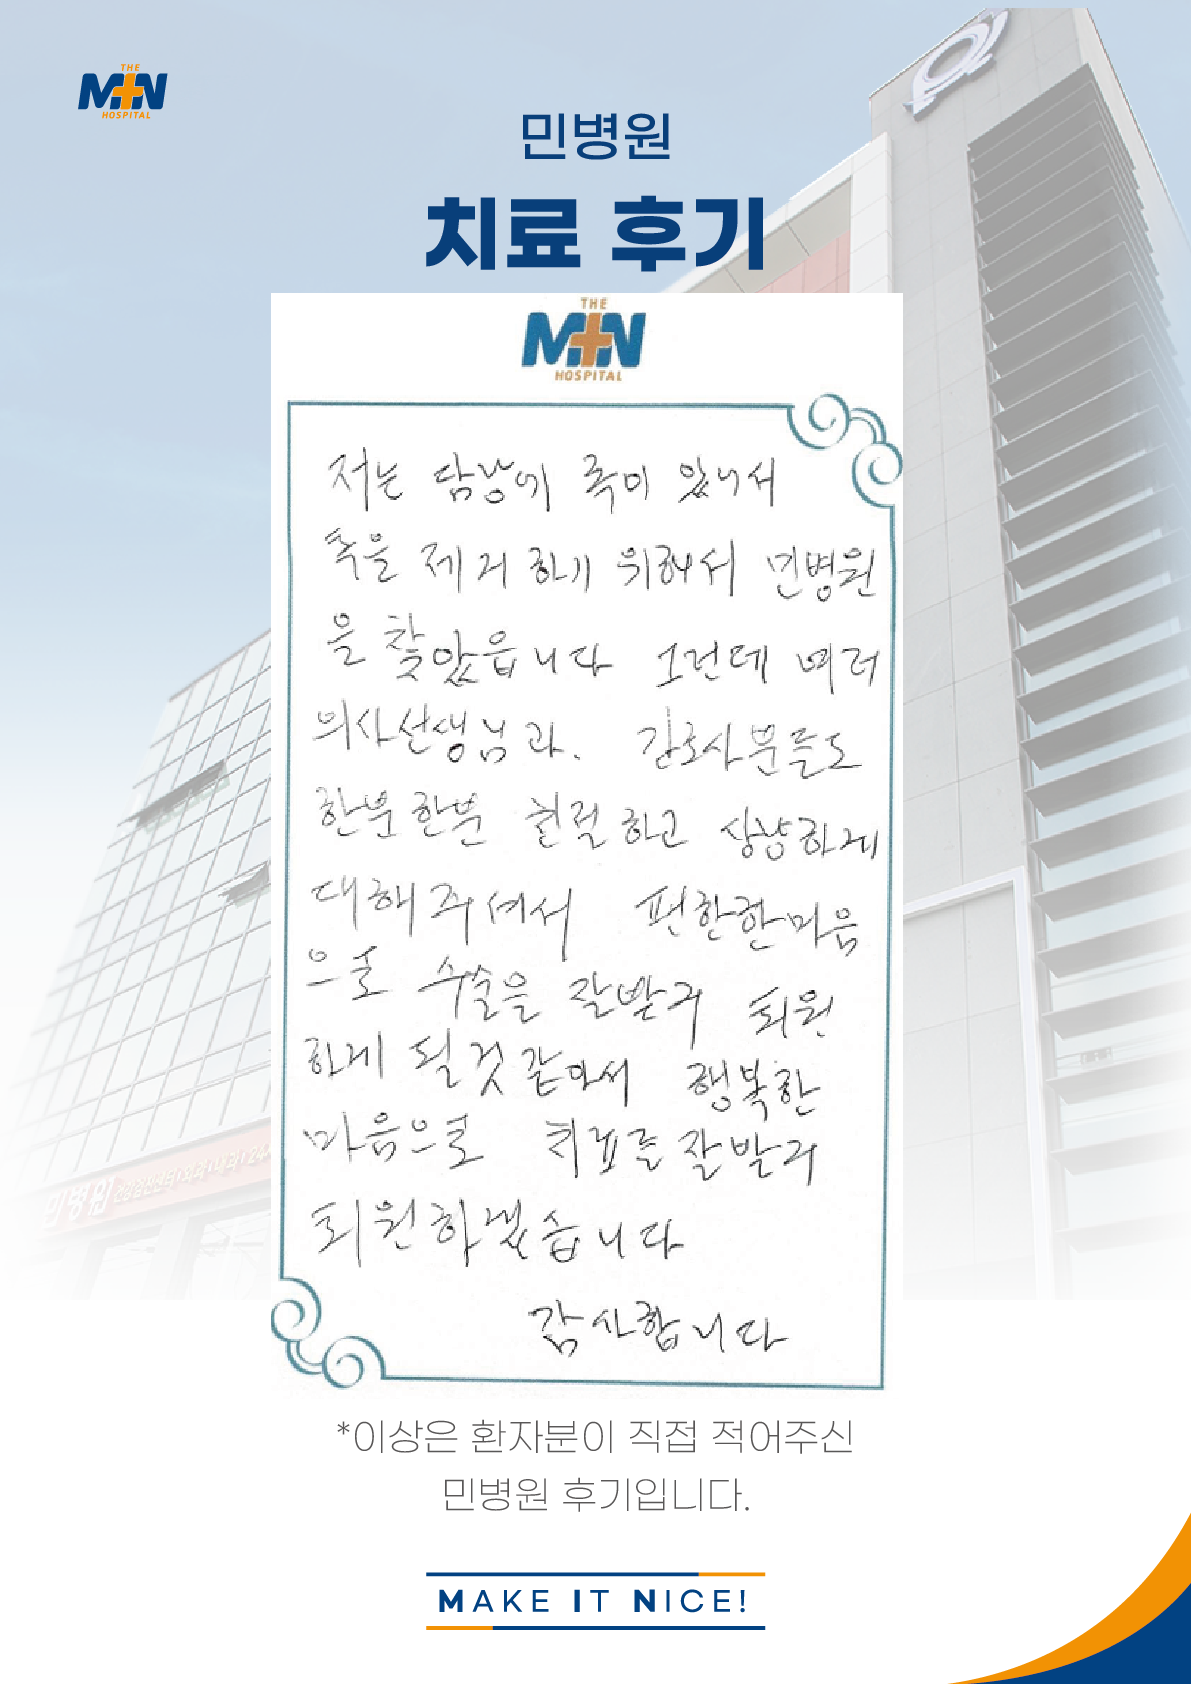 THE
MIN
HOSPITAL
민병원
치료 후기
THE
MIN
HOSPITAL
저는 담낭에 혹이 있어서
혹을 제거 하기 위해서 민병원
을 찾았읍니다 그런데 여러
의사선생님과. 간호사분들도
한분한분 친절하고 상냥하게
대해주셔서 편한한마음
으로 수술을 잘받구 퇴원
하게 될것같아서 행복한
마음으로 치료를 잘받구
퇴원하겠습니다
감사합니다
민병원
*이상은 환자분이 직접 적어주신
민병원 후기입니다.
MAKE IT NICE!